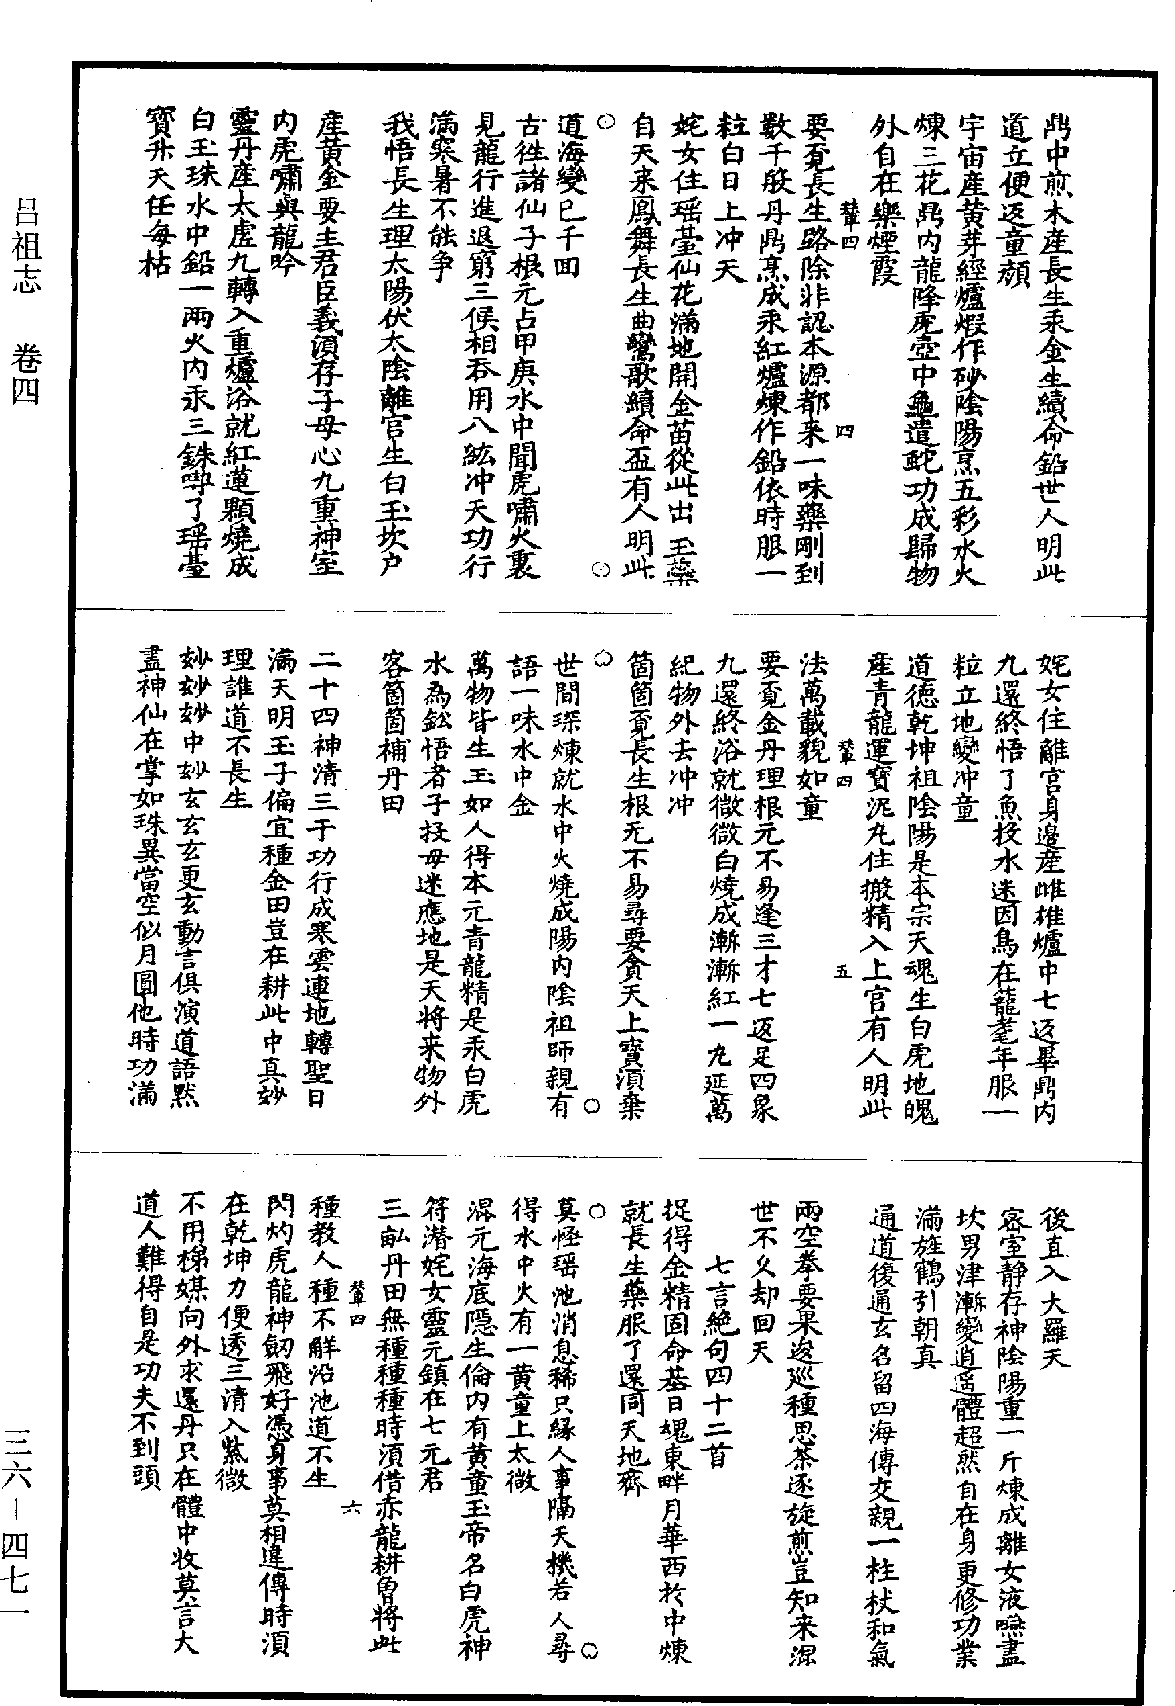 鼎中煎木産長生汞金生續命鉛世人明此
道立便返童顏
宇宙産黃芽經爐煅作砂陰陽烹五彩水火
煉三花鼎內龍降虎壺中龜遣蛇功成歸物
外自在樂煙霞
輦四
四
要覔長生路除非認本源都来一味藥剛到
數千般丹鼎烹成汞紅爐煉作鉛依時服一
粒白日上冲天
姹女住瑶䑓仙花滿地開金苗從此出玉藥
自天来鳳舞長生曲鸞歌續命盃有人明此
道海變已千回
古徃諸仙子根元占甲庚水中聞虎嘯火裏
見龍行進退窮三候相吞用八紘冲天功行
滿寒暑不能争
我悟長生理太陽伏太隂離宫生白玉坎户
産黃金要主君臣義須存子母心九重神室
內虎嘯與龍吟
靈丹産太虛九轉入重爐浴就紅蓮顆燒成
白玉珠水中鉛一兩火內汞三銖嚀了瑶䑓
寶升天任每枯
姹女住離宫身邊産雌雄爐中七返畢鼎內
九還終悟了魚投水迷因鳥在籠耄年服一
粒立地變冲童
道德乾坤祖陰陽是本宗天魂生白虎地魄
産青龍運寶泥丸住搬精入上宫有人明此
輦四
五
法萬載貌如童
要覔金丹理根元不易逢三才七返足四象
九還終浴就微微白燒成漸漸紅一丸延萬
紀物外去冲冲
箇箇覔長生根无不易尋要貪天上寶須棄
世間琛煉就水中火燒成陽內陰祖師親有
語一味水中金
萬物皆生玉如人得本元青龍精是汞白虎
水為鉛悟者子投母迷應地是天將来物外
客箇箇補丹田
二十四神清三千功行成寒雲連地轉聖日
滿天明玉子偏宜種金田豈在耕此中真妙
理誰道不長生
妙妙妙中妙玄玄玄更玄動言俱演道語黙
盡神仙在掌如珠異當空似月圓他時功滿
後直入大羅天
密室靜存神陰陽重一斤煉成離女液嚥盡
坎男津漸變逍遥體超然自在身更修功業
滿旌鶴引朝真
通道後通玄名留四海傳交親一柱杖和氣
兩空拳要果逡巡種思茶逐旋煎豈知来源
世不久却回天
七言絶句四十二首
捉得金精固命基日魂東畔月華西於中煉
就長生藥服了還同天地齊
莫怪瑶池消息稀只緣人事隔天機若人尋
得水中火有一黃童上太微
混元海底隱生倫內有黃童玉帝名白虎神
符潛姹女靈元鎮在七元君
三畝丹田無種種種時須借赤龍耕曾將此
輦四
六
種教人種不觧沿池道不生
閃灼虎龍神劒飛好憑身事莫相違傳時須
在乾坤力便透三清入紫微
不用梯媒向外求還丹只在體中收莫言大
道人難得自是功夫不到頭
呂祖志 卷四
三六－四七一